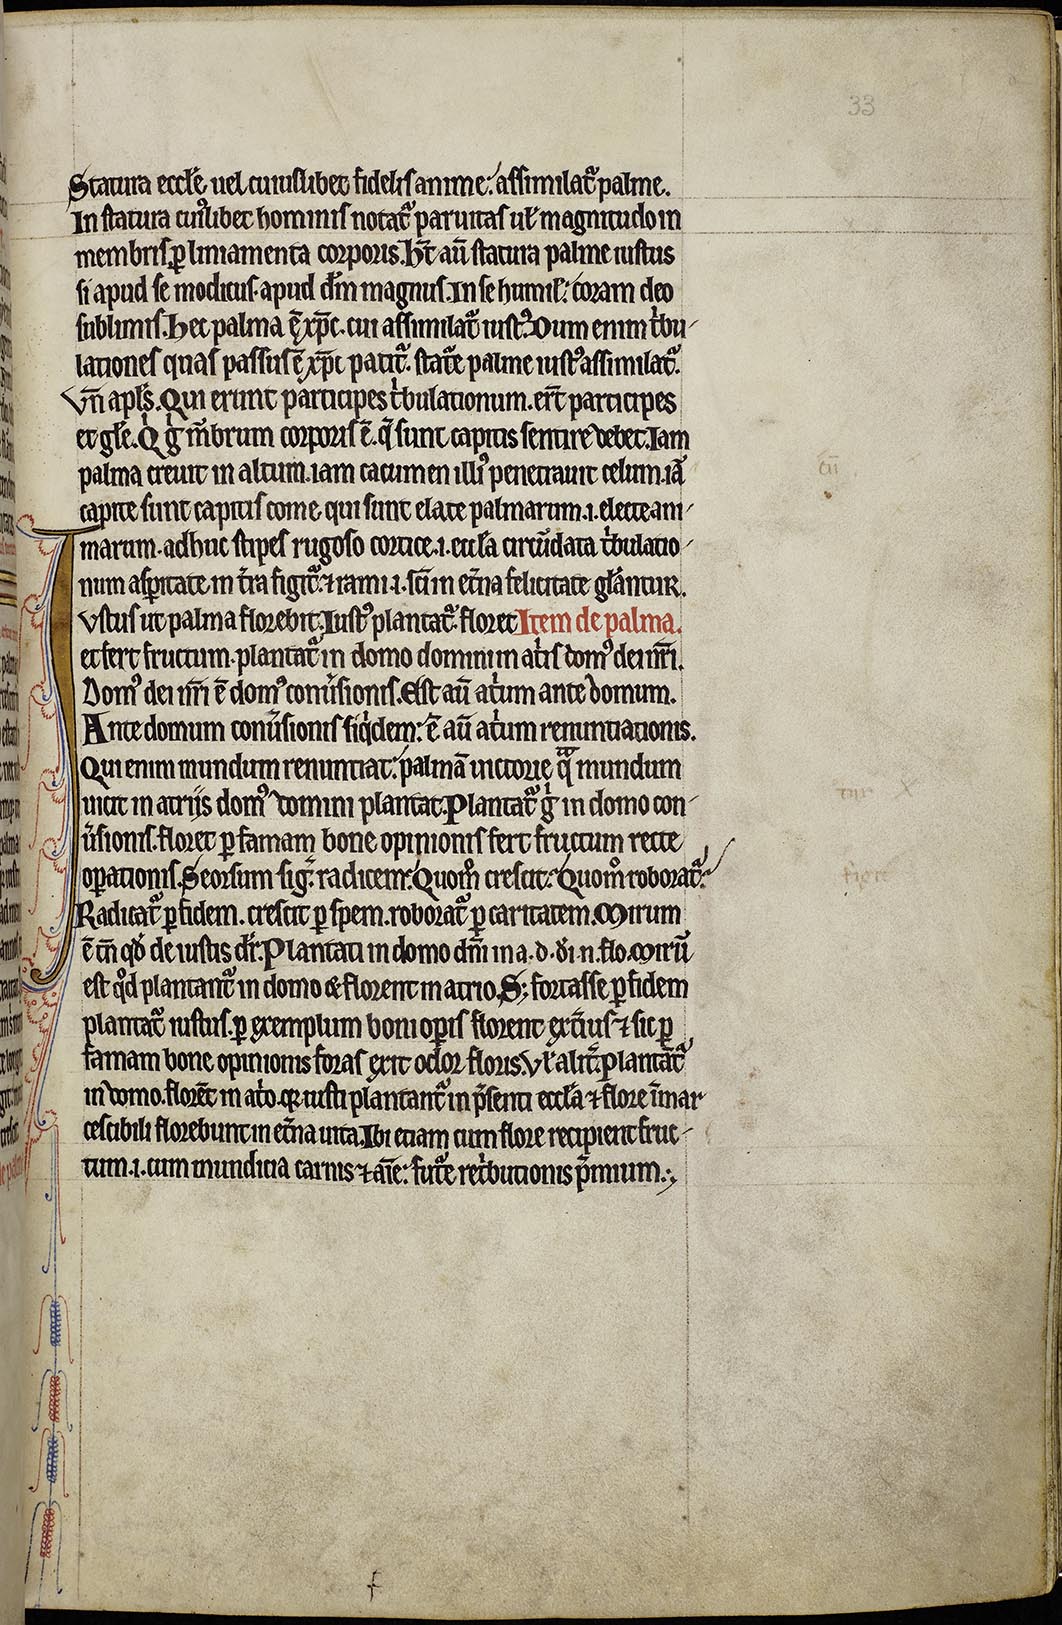 33
Statura eccl̄e uel cuiuslibet fidelis anime: assimilat᷑ palme.
In statura cui᷒libet hominis notat᷑ paruitas ul̄ magnitudo in
membris ꝑ liniamenta corporis. h̄t aū statura palme iustus
si apud se modicus. apud dn̄m magnus. In se humil̓: coram deo
sublimis. Hec palma ē xp̄c. cui assimilat᷑ iust᷒. Dum enim t̓bu
lationes quas passus ē xp̄c patit᷑. stat᷑e palme iust᷒ assimilat᷑.
Vn̄ apl̄s. Qui erunt participes t̓bulationum. er̄t participes
et gl̄e. Q̇ g̊ m̄brum corporis ē. q̄ sunt capitis sentire debet. Iam
palma creuit in altum. iam cacumen illi᷒ penetrauit celum. iā
capite sunt capitis come qui sunt elate palmarum .i. electe ani
marum. adhuc stipes rugoso cortice .i. eccl̄a circū̄data t̓bulatio
num asꝑitate in t̄ra figit᷑. ⁊ rami .i. sc̄i in et̄na felicitate gl̄antur.
Vstus ut palma florebit. Iust᷒ plantat᷑. floret Item de palma.
et fert fructum. plantat᷑ in domo domini in at̓is dom᷒ dei nr̄i.
Dom᷒ dei nr̄i ē dom᷒ conu̓sionis. Est aū at̓um ante domum.
Ante domum conu̓sionis siq̓dem: ē aū at̓um renuntiationis.
Qui enim mundum renuntiat: palmā uictorie qᷓ mundum
uicit in atrijs dom᷒ domini plantat. Plantat᷑ g̊ in domo con
u̓sionis. floret ꝑ famam bone opinionis fert fructum recte
oꝑationis. Seorsum sig᷑ radicem. Quom̊ crescit. Quom̊ roborat᷑.
Radicat᷑ ꝑ fidem. crescit ꝑ spem. roborat᷑ ꝑ caritatem. Mirum
ē tn̄ qd̓ de iustis dr̄. Plantati in domo dn̄i in a. d. di. n. flo. Mirū
est q̓d plantant᷑ in domo & florent in atrio. S; fortasse ꝑ fidem
plantat᷑ iustus. ꝑ exemplum boni oꝑis florent ext̄ius ⁊ sic ꝑ
famam bone opinionis foras exit odor floris. Vl̄ alit᷑. Plantāt᷑
in domo. florēt in at̓o. qꝛ iusti plantant᷑ in p̄senti eccl̄a ⁊ flore īmar
cescibili florebunt in et̄na uita. Ibi etiam cum flore recipient fruc
tum .i. cum mundicia carnis ⁊ aīe: fut᷑e ret̓butionis p̄mium.